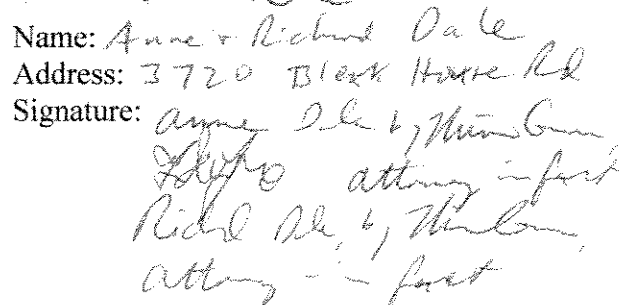 Name: Anne & Richard Dale
Address: 3720 Bleak House Rd
Signature: Anne Dale by
attorney in fact
Richard Dale, by
attorney in fact